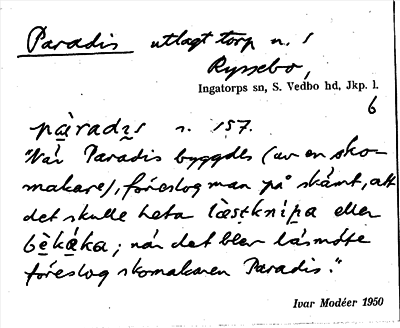 Paradis utlagt torp u. /
Ryssebo,
Ingatorps sn, S. Vedbo hd, Jkp. l.
6
pàradıs s. 157.
"När Paradis byggdes (av en sko-
makare), föreslog man på skämt, att
det skulle heta lästknipa eller
bèkåka; när det blev läsmöte
föreslog skomakaren Paradis."
Ivar Modéer 1950